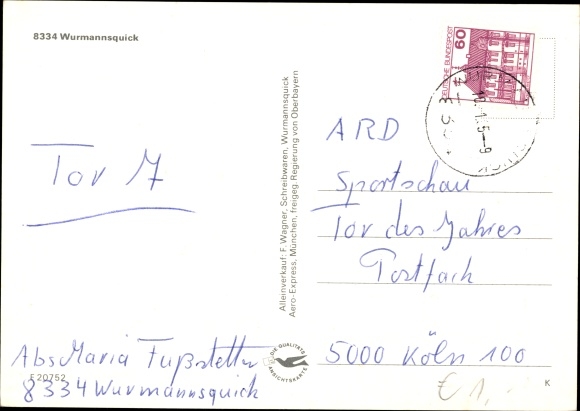 8334 Wurmannsquick
60
DEUTSCHE BUNDESPOST
ARD
Sportschau
Tor des Jahres
Postfach
5000 Köln 100
Tor 7
Alleinverkauf: F. Wagner, Schreibwaren, Wurmannsquick
Aero-Express, München, freigeg. Regierung von Oberbayern
Abs Maria Fußstetter
8334 Wurmannsquick
F 20752
DIE QUALITÄTS
ANSICHTSKARTE
K
€ 1,-